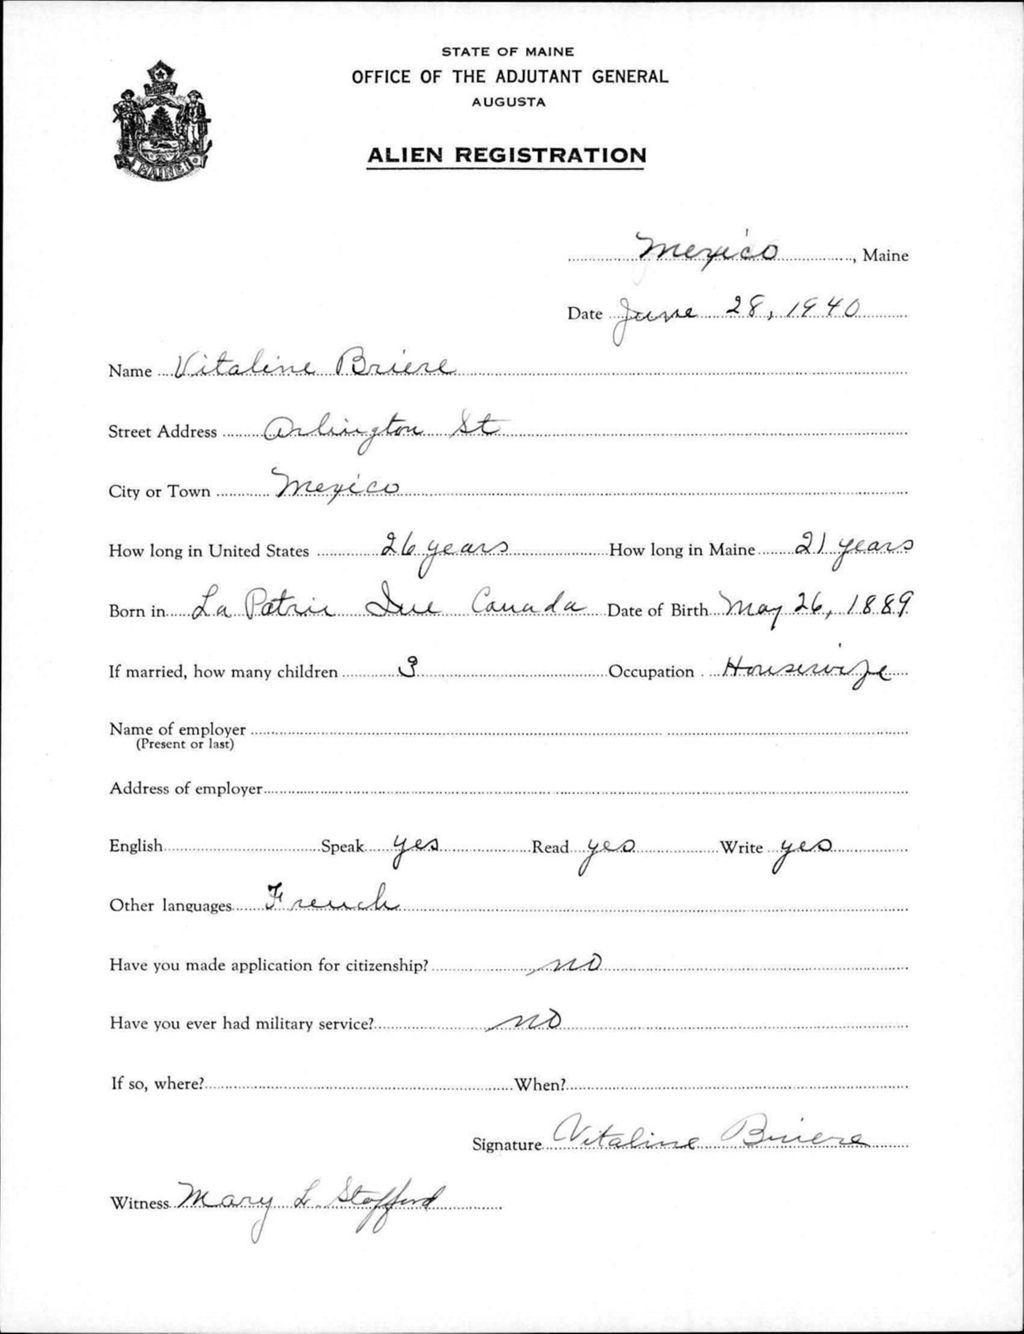 STATE OF MAINE
OFFICE OF THE ADJUTANT GENERAL
AUGUSTA
ALIEN REGISTRATION
MAINE
Mexico, Maine
Date June 28, 1940
Name Vitaline Briere
Street Address Arlington St
City or Town Mexico
How long in United States 26 years How long in Maine 21 years
Born in La Patrie Que Canada Date of Birth May 26, 1889
If married, how many children 3 Occupation Housewife
Name of employer
(Present or last)
Address of employer
English Speak yes Read yes Write yes
Other languages French
Have you made application for citizenship? no
Have you ever had military service? no
If so, where? When?
Signature Vitaline Briere
Witness Mary L. Stafford